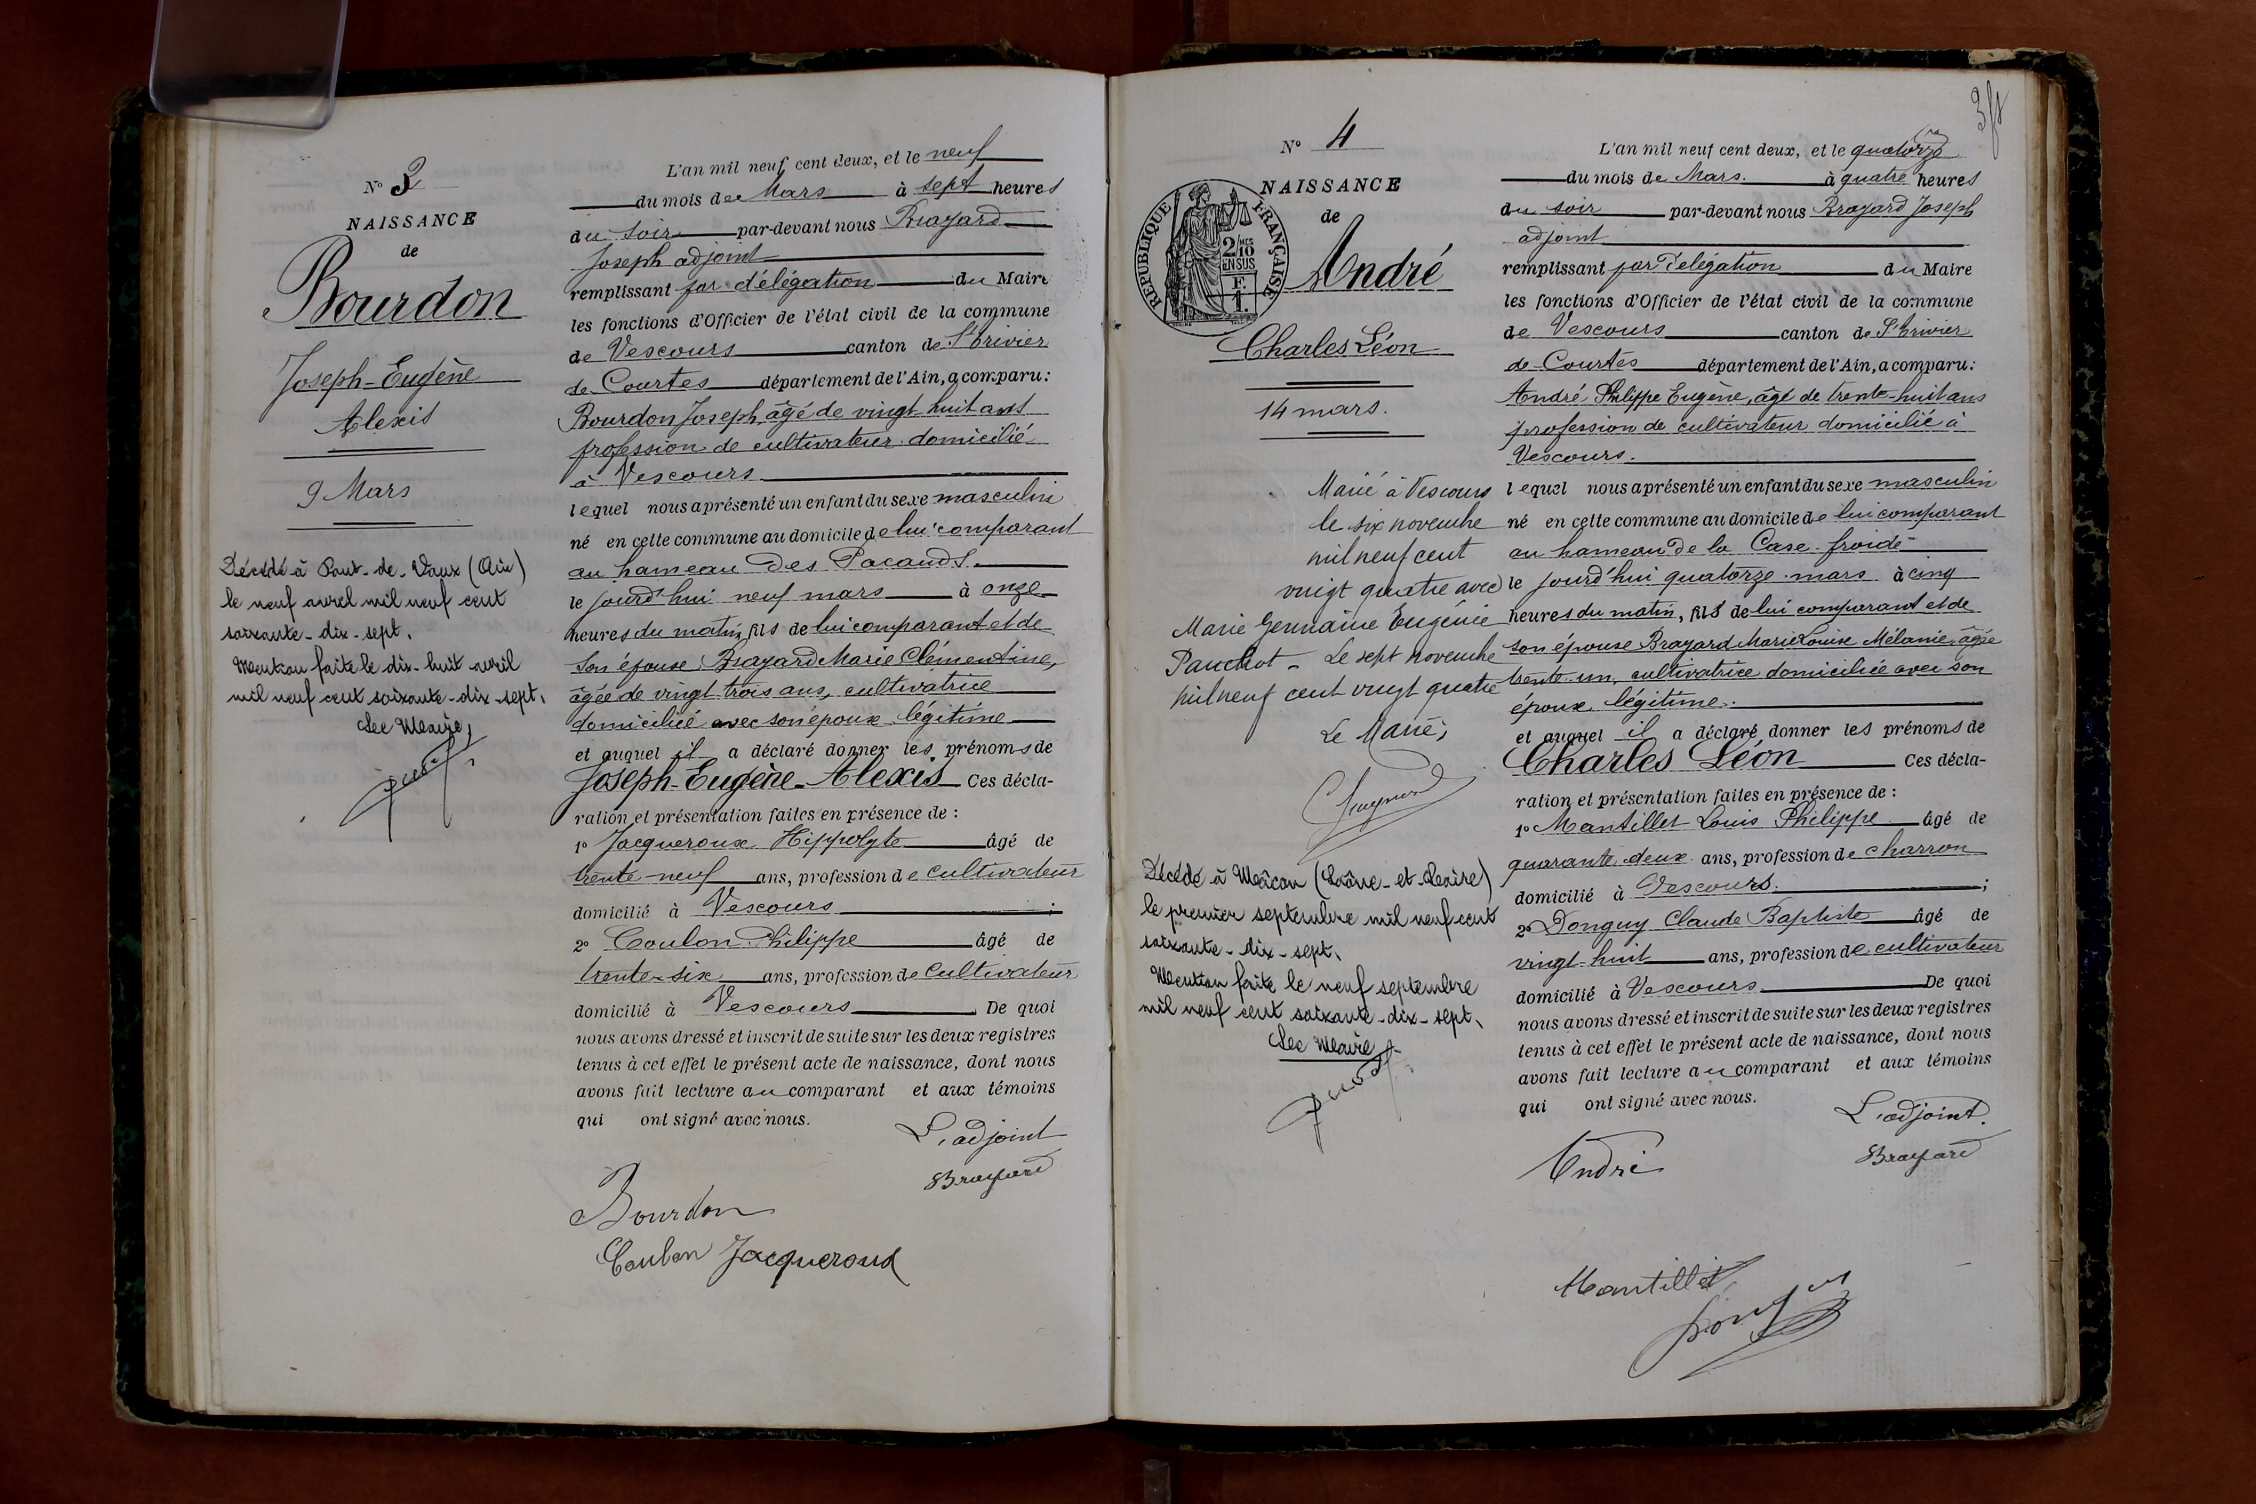 N° 3
NAISSANCE
de
Bourdon
Joseph-Eugène
Alexis
9 Mars
Décédé à Pont-de-Vaux (Ain)
le neuf avril mil neuf cent
soixante-dix-sept.
Mention faite le dix-huit avril
mil neuf cent soixante-dix-sept.
Le Maire,
L'an mil neuf cent deux, et le neuf
du mois de Mars à sept heures
du soir par-devant nous Brayard
Joseph adjoint
remplissant par délégation du Maire
les fonctions d'Officier de l'état civil de la commune
de Vescours canton de St Trivier
de Courtes département de l'Ain, a comparu:
Bourdon Joseph, âgé de vingt-huit ans
profession de cultivateur domicilié
à Vescours
lequel nous a présenté un enfant du sexe masculin
né en cette commune au domicile de lui comparant
au hameau des Pacauds
le jourd'hui neuf mars à onze
heures du matin, fils de lui comparant et de
son épouse Brayard Marie Clémentine,
âgée de vingt trois ans, cultivatrice
domiciliée avec son époux légitime
et auquel il a déclaré donner les prénoms de
Joseph-Eugène-Alexis Ces décla-
ration et présentation faites en présence de :
1° Jacqueroux Hippolyte âgé de
trente neuf ans, profession de cultivateur
domicilié à Vescours ;
2° Coulon Philippe âgé de
trente-six ans, profession de cultivateur
domicilié à Vescours. De quoi
nous avons dressé et inscrit de suite sur les deux registres
tenus à cet effet le présent acte de naissance, dont nous
avons fait lecture au comparant et aux témoins
qui ont signé avec nous.
L'adjoint
Brayard
Bourdon
Coulon Jacqueroux
N° 4
NAISSANCE
de
REPUBLIQUE FRANÇAISE
2/10
EN SUS
F.
1
André
Charles Léon
14 mars.
Marié à Vescours
le six novembre
mil neuf cent
vingt quatre avec
Marie Germaine Eugénie
Pauchot - Le sept novembre
mil neuf cent vingt quatre
Le Maire,
Décédé à Mâcon (Saône-et-Loire)
le premier septembre mil neuf cent
soixante-dix-sept.
Mention faite le neuf septembre
mil neuf cent soixante-dix-sept.
Le Maire
L'an mil neuf cent deux, et le quatorze
du mois de Mars. à quatre heures
du soir par-devant nous Brayard Joseph
adjoint
remplissant par délégation du Maire
les fonctions d'Officier de l'état civil de la commune
de Vescours canton de St Trivier
de Courtes département de l'Ain, a comparu:
André Philippe Eugène, âgé de trente-huit ans
profession de cultivateur domicilié à
Vescours.
lequel nous a présenté un enfant du sexe masculin
né en cette commune au domicile de lui comparant
au hameau de la Case-froide
le jourd'hui quatorze mars à cinq
heures du matin, fils de lui comparant et de
son épouse Brayard Marie Louise Mélanie, âgée
trente-un, cultivatrice domiciliée avec son
époux légitime.
et auquel il a déclaré donner les prénoms de
Charles Léon Ces décla-
ration et présentation faites en présence de :
1° Mantillet Louis Philippe âgé de
quarante deux ans, profession de charron
domicilié à Vescours. ;
2° Donguy Claude Baptiste âgé de
vingt-huit ans, profession de cultivateur
domicilié à Vescours De quoi
nous avons dressé et inscrit de suite sur les deux registres
tenus à cet effet le présent acte de naissance, dont nous
avons fait lecture au comparant et aux témoins
qui ont signé avec nous.
L'adjoint.
Brayard
André
Mantillet
Donguy